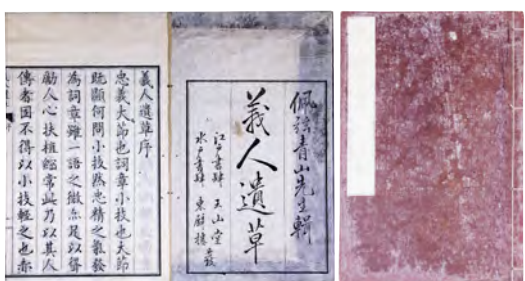 佩弦青山先生輯
義人遺草
江戸書肆 玉山堂
水戸書肆 東壁樓 發
義人遺草序
忠義大節也詞章小技也大節
既顯何問小技然忠精之氣發
為詞章雖一語之微亦足以聳
動人心扶植綱常此乃以其人
傳者固不得以小技輕之也赤